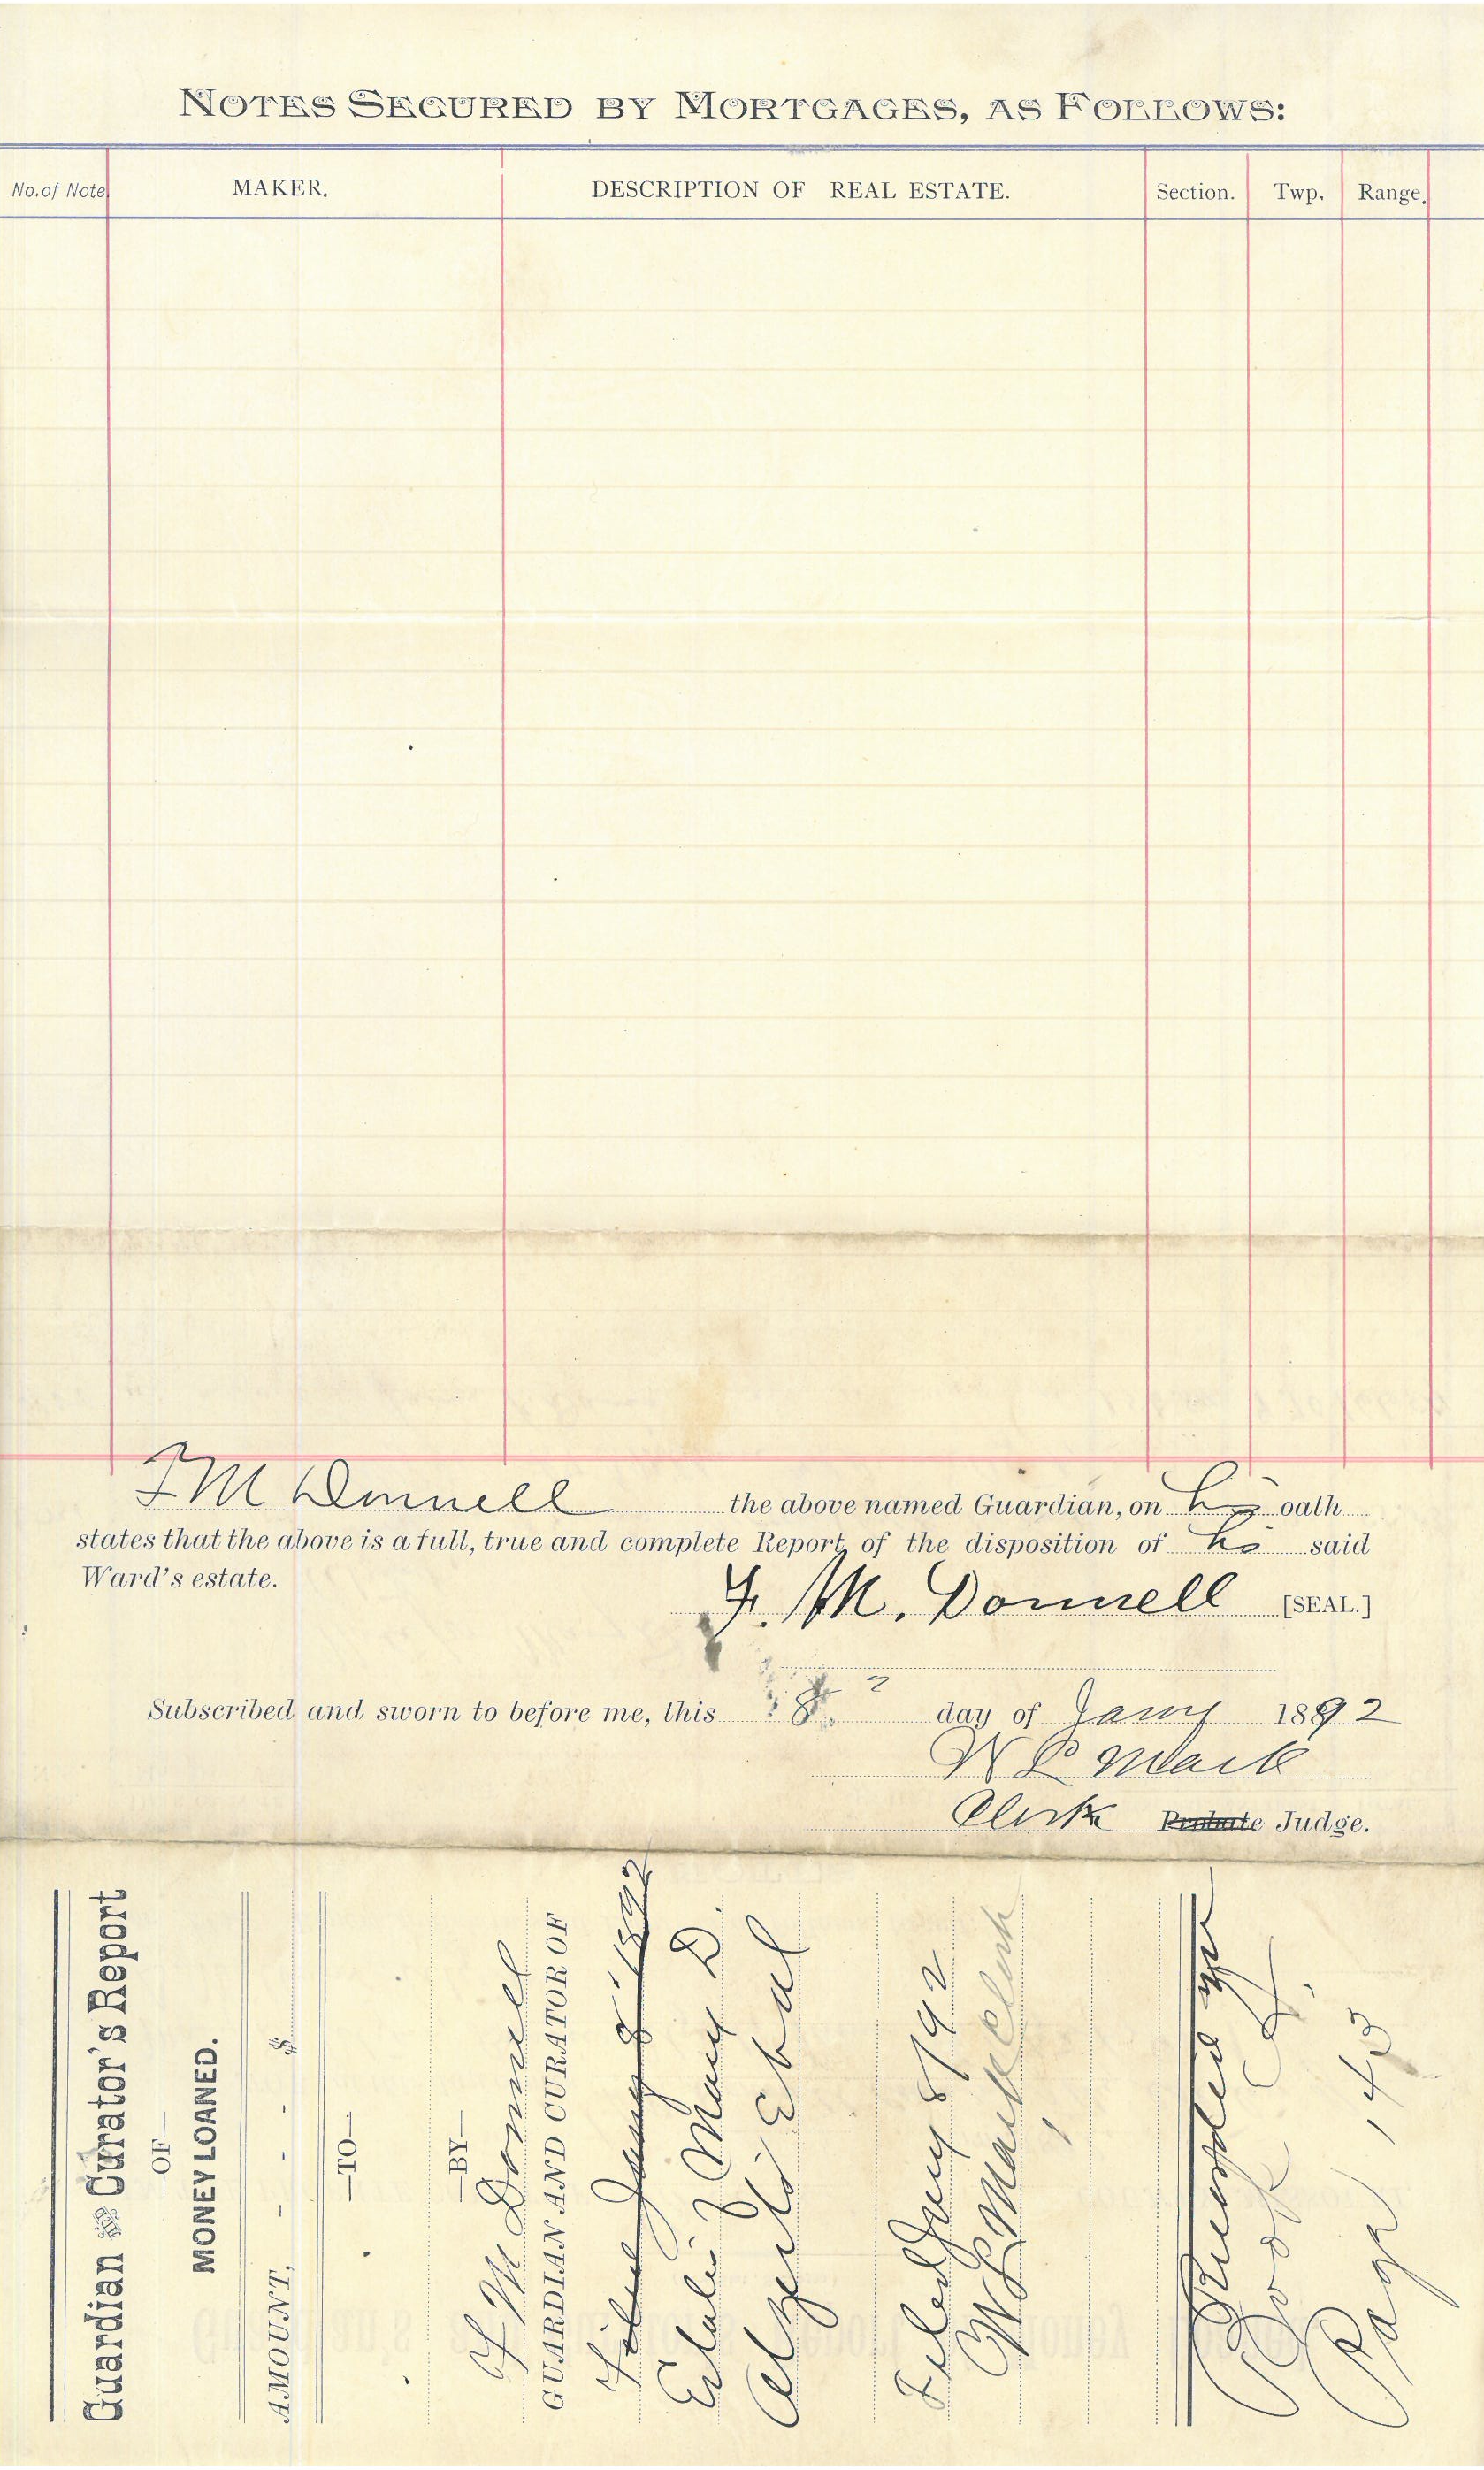 NOTES SECURED BY MORTGAGES, AS FOLLOWS:
No. of Note MAKER. DESCRIPTION OF REAL ESTATE. Section. Twp. Range.
F M Donnell the above named Guardian, on his oath
states that the above is a full, true and complete Report of the disposition of his said
Ward's estate.
F. M. Donnell [SEAL.]
Subscribed and sworn to before me, this 8 day of Jany 1892
W L Mack
Clerk Probate Judge.
Guardian and Curator's Report
—OF—
MONEY LOANED.
AMOUNT, - - - $
—TO—
—BY—
F M Donnel
GUARDIAN AND CURATOR OF
Filed Jany 8 1892
Eslalie & Mary D.
Filed Jany 8/92
W L Mack Clerk
Recorded
Book
Page 143